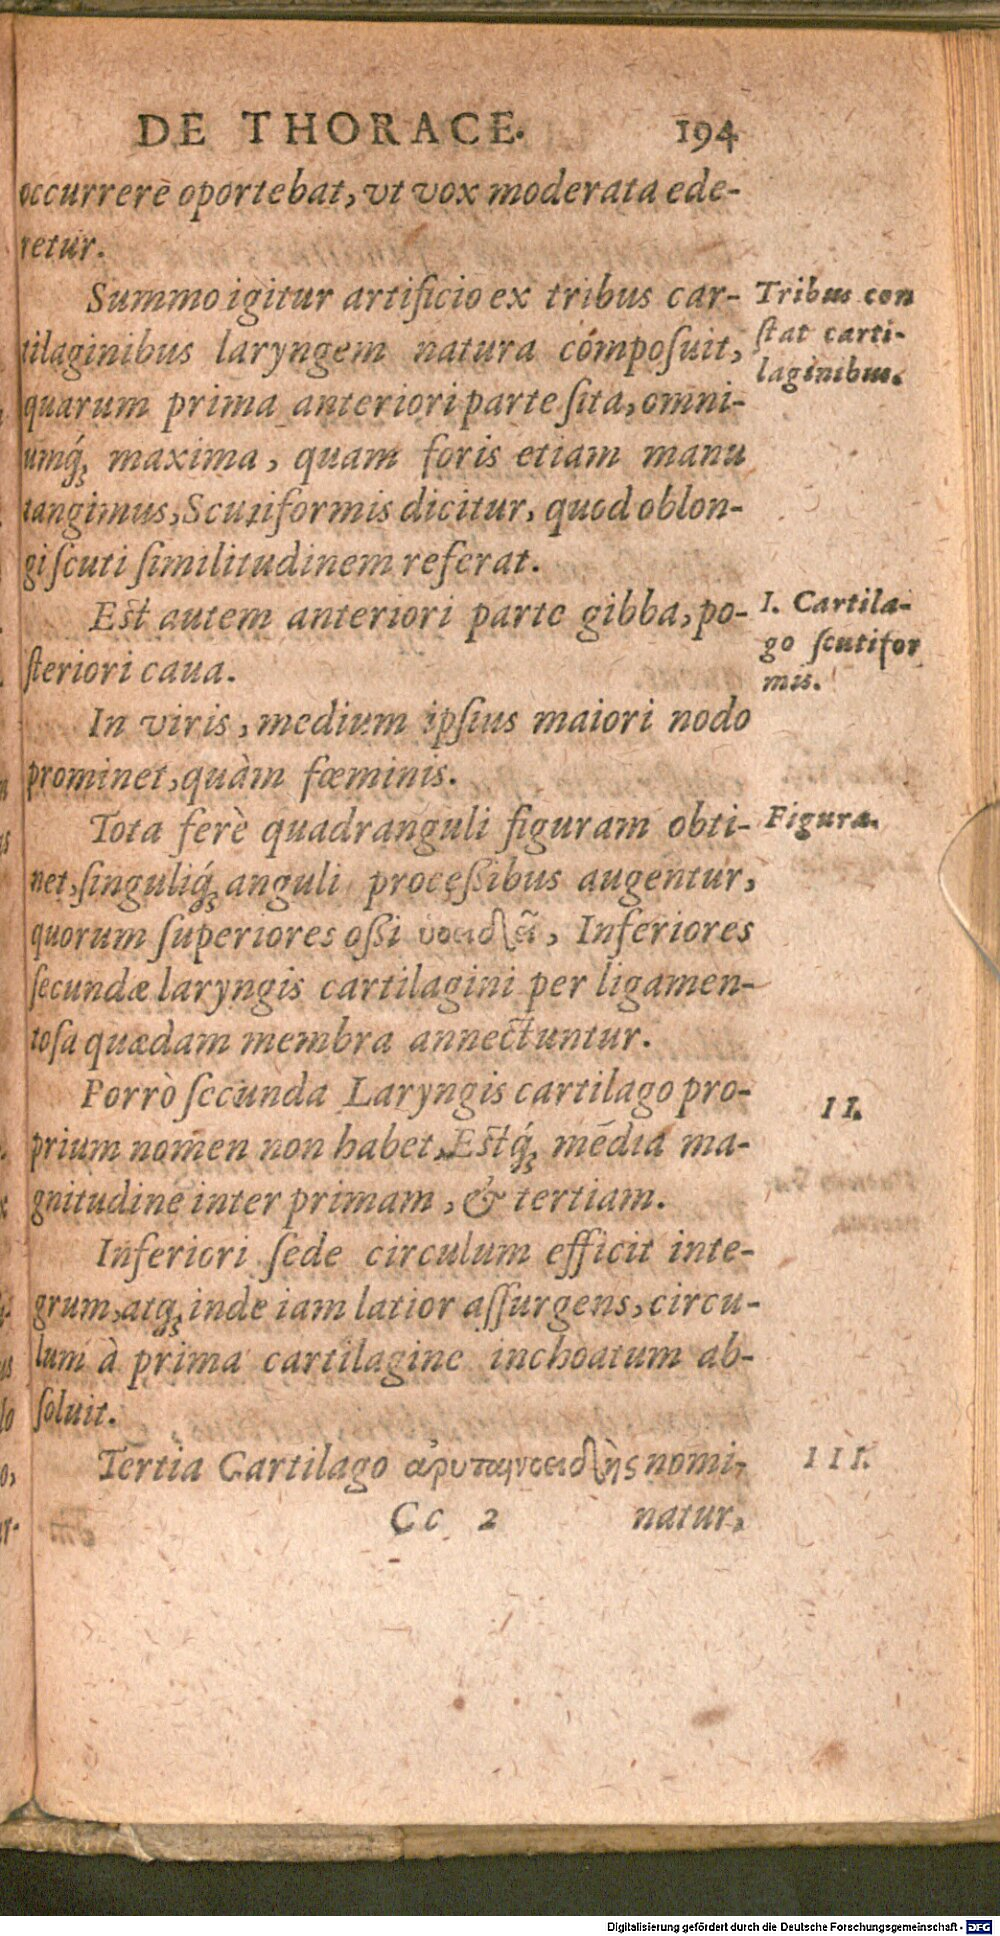 DE THORACE. 194
occurrere oportebat, vt vox moderata ede-
retur.
Summo igitur artificio ex tribus car-
tilaginibus laryngem natura composuit,
quarum prima anteriori parte ſita, omni-
umq́; maxima, quam foris etiam manu
tangimus, Scutiformis dicitur, quod oblon-
gi ſcuti ſimilitudinem referat.
Eſt autem anteriori parte gibba, po-
ſteriori caua.
In viris, medium ipſius maiori nodo
prominet, quàm fœminis.
Tota ferè quadranguli figuram obti-
net, ſinguliq́; anguli proceſſibus augentur,
quorum ſuperiores oſſi ὑοειδεῖ, Inferiores
ſecundæ laryngis cartilagini per ligamen-
toſa quædam membra annectuntur.
Porrò ſecunda Laryngis cartilago pro-
prium nomen non habet, Eſtq́; media ma-
gnitudine inter primam, & tertiam.
Inferiori ſede circulum efficit inte-
grum, atq; inde iam latior aſſurgens, circu-
lum à prima cartilagine inchoatum ab-
ſoluit.
Tertia Cartilago ἀρυταινοειδὴς nomi-
Cc 2 natur,
Tribus con
ſtat carti-
laginibus.
I. Cartila-
go ſcutifor
mis.
Figura.
II.
III.
Digitalisierung gefördert durch die Deutsche Forschungsgemeinschaft - DFG